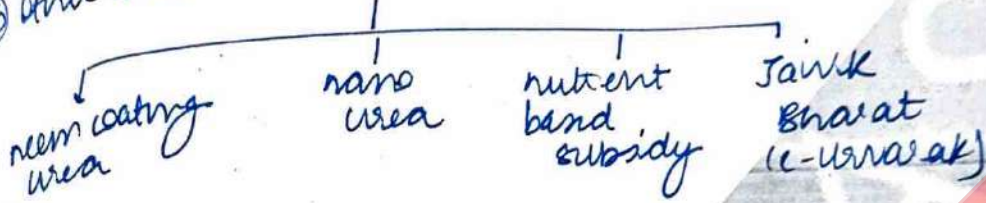 neem coating
urea
nano
urea
nutient
band
subsidy
Jaivik
Bharat
(e-urvarak)